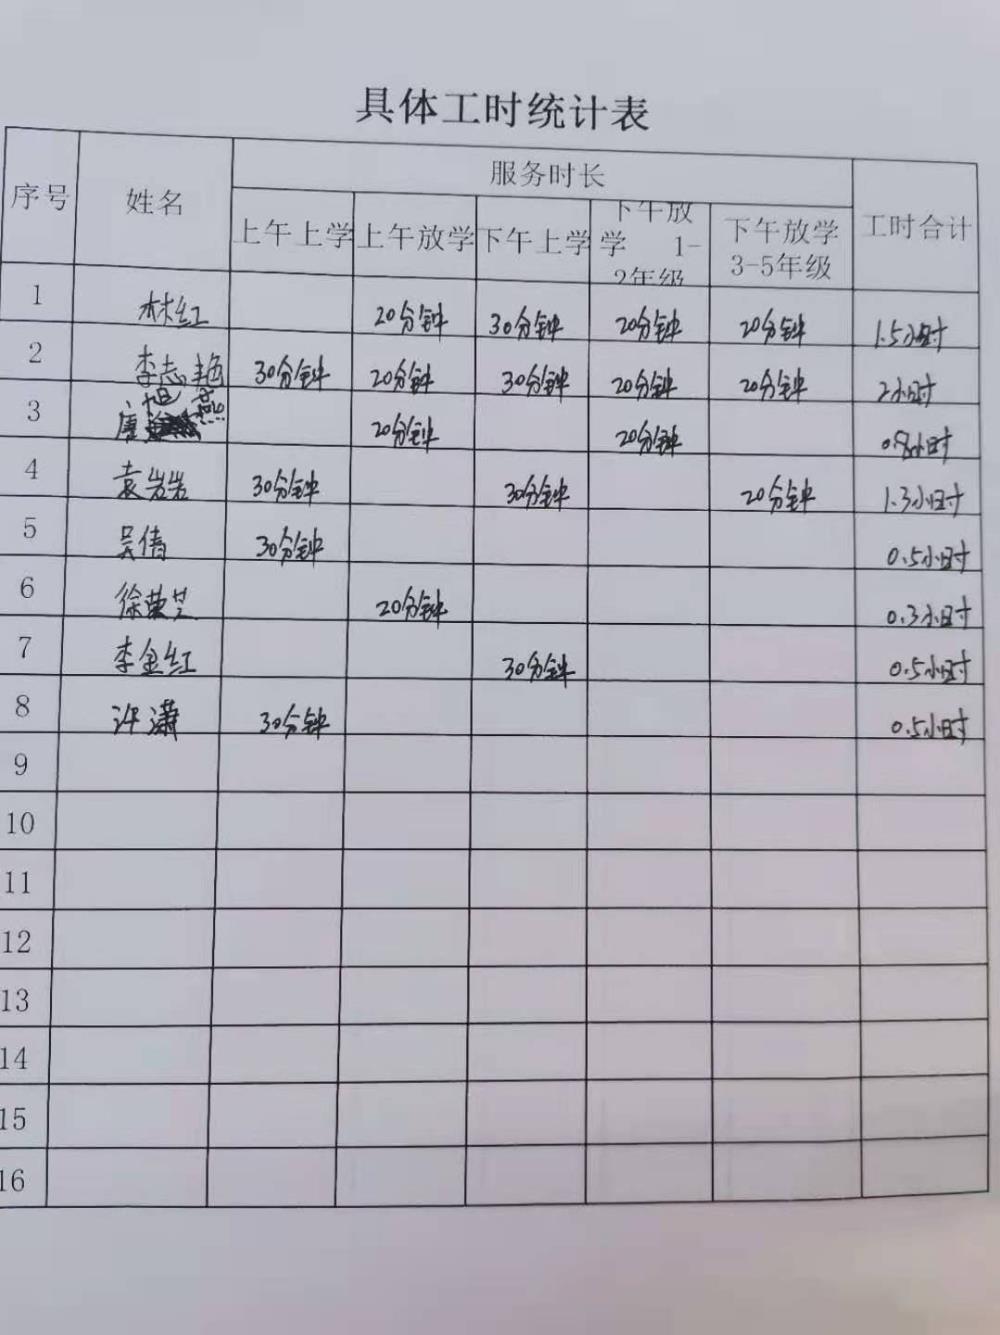 具体工时统计表
序号 姓名 服务时长 工时合计
上午上学 上午放学 下午上学 下午放学 1-2年级 下午放学 3-5年级
1 林红 20分钟 30分钟 20分钟 20分钟 1.5小时
2 李志艳 30分钟 20分钟 30分钟 20分钟 20分钟 2小时
3 唐旭 20分钟 20分钟 0.8小时
4 袁岩岩 30分钟 30分钟 20分钟 1.3小时
5 吴倩 30分钟 0.5小时
6 徐荣芝 20分钟 0.3小时
7 李金红 30分钟 0.5小时
8 许潇 30分钟 0.5小时
9
10
11
12
13
14
15
16